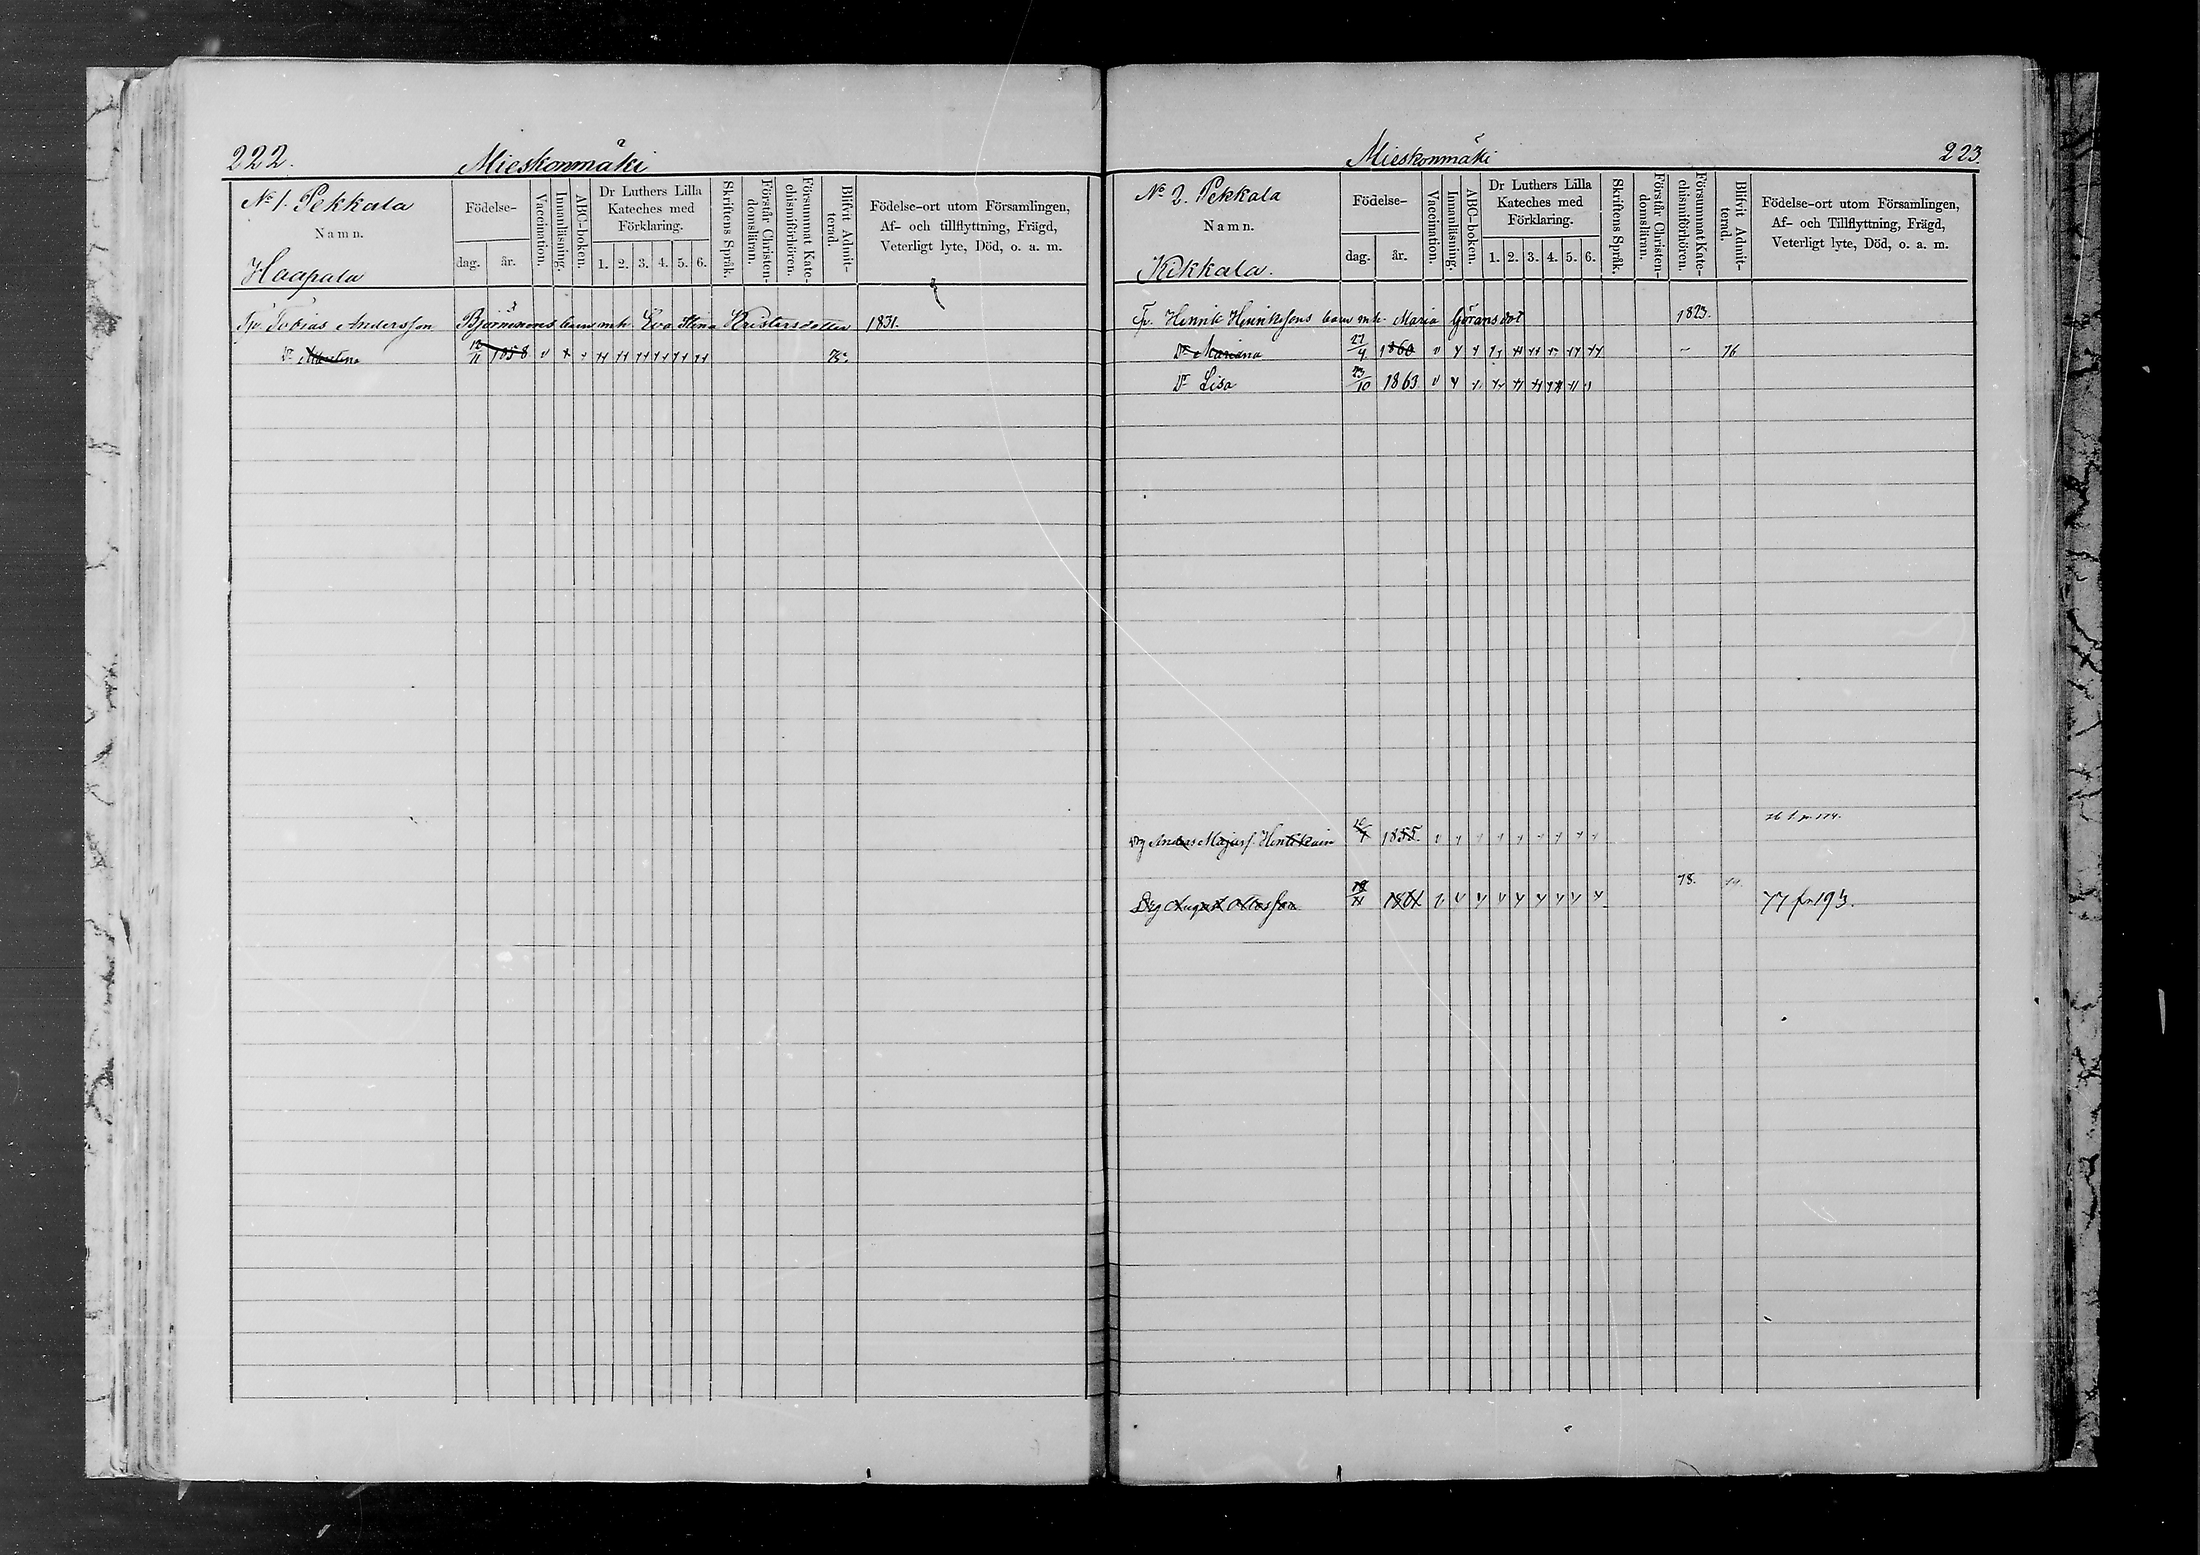 222.
Mieskonmäki
No 1. Pekkala
Namn.
Haapala
Födelse-
dag.
år.
Vaccination.
Innanläsning.
ABC-boken.
Dr Luthers Lilla
Kateches med
Förklaring.
1. 2. 3. 4. 5. 6.
Skriftens Språk.
Förstår Christen-
domslärnn.
Försummat Kate-
chismiförhören.
Blifvit Admit-
terad.
Födelse-ort utom Församlingen,
Af- och tillflyttning, Frägd,
Veterligt lyte, Död, o. a. m.
Tp. Tobias Andersson Björninens barn mh. Eva Stina Kristersdotter 1831.
Dr 12/11 1858 76
223.
Mieskonmäki
No 2. Pekkala
Namn.
Kekkala.
Födelse-
dag.
år.
Vaccination.
Innanläsning.
ABC-boken.
Dr Luthers Lilla
Kateches med
Förklaring.
1. 2. 3. 4. 5. 6.
Skriftens Språk.
Förstår Christen-
domslärnn.
Försummat Kate-
chismiförhören.
Blifvit Admit-
terad.
Födelse-ort utom Församlingen,
Af- och Tillflyttning, Frägd,
Veterligt lyte, Död, o. a. m.
Tp. Henrik Henrikssons barn mh. Maria Göransdot 1823.
Dr Mariana 27/4 1860 76
Dr Lisa 23/10 1863
Drg Anders Majasf. Henttuinen 1855
78.
Drg August Ottosson 19/11 1861 77 fr 193.